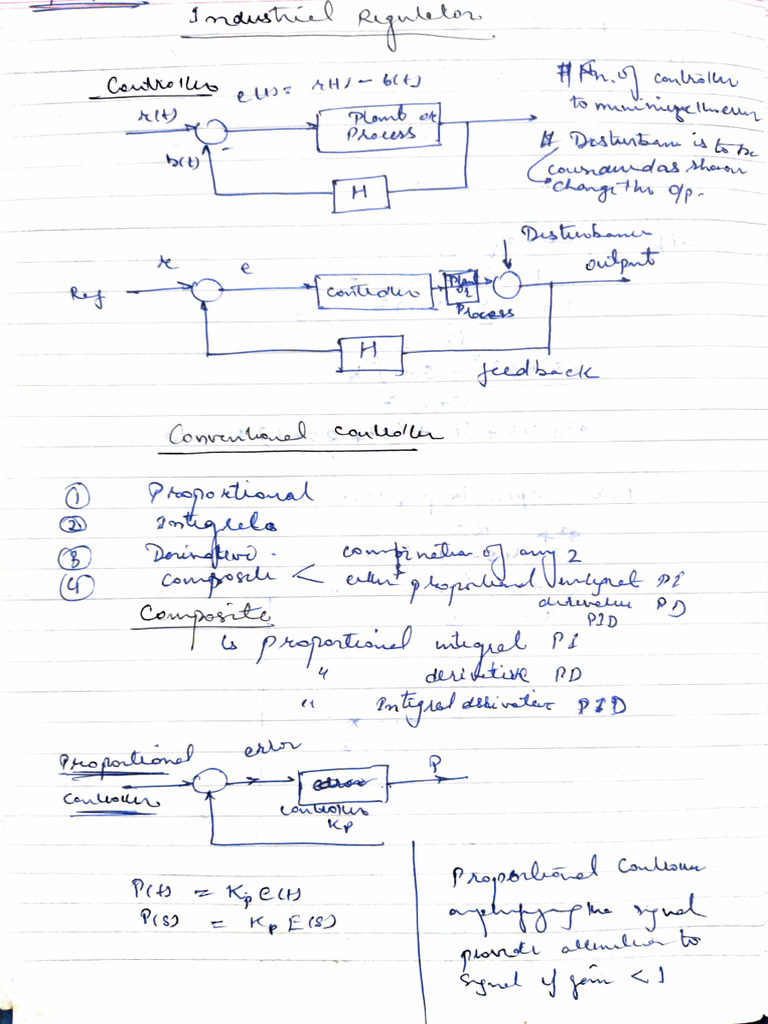 Industrial Regulator
Controller e(t) = r(t) - b(t)
r(t)
b(t)
-
Plant or
Process
H
# Fn. of controller
to minimize the error
# Disturbance is to be
as shown
change the o/p.
Disturbance
output
Ref
r
e
controller
Plant
or
Process
H
feedback
Conventional Controller
① Proportional
② Integral
③ Derivative.
④ Composite < combination of any 2
either proportional integral PI
derivative PD
PID
Composite
↳ proportional integral PI
" derivative PD
" Integral derivative PID
Proportional
Controller
error
P
controller
Kp
P(t) = Kp e(t)
P(s) = Kp E(s)
Proportional Controller
amplifying the signal
provide attenuation to
signal if gain < 1